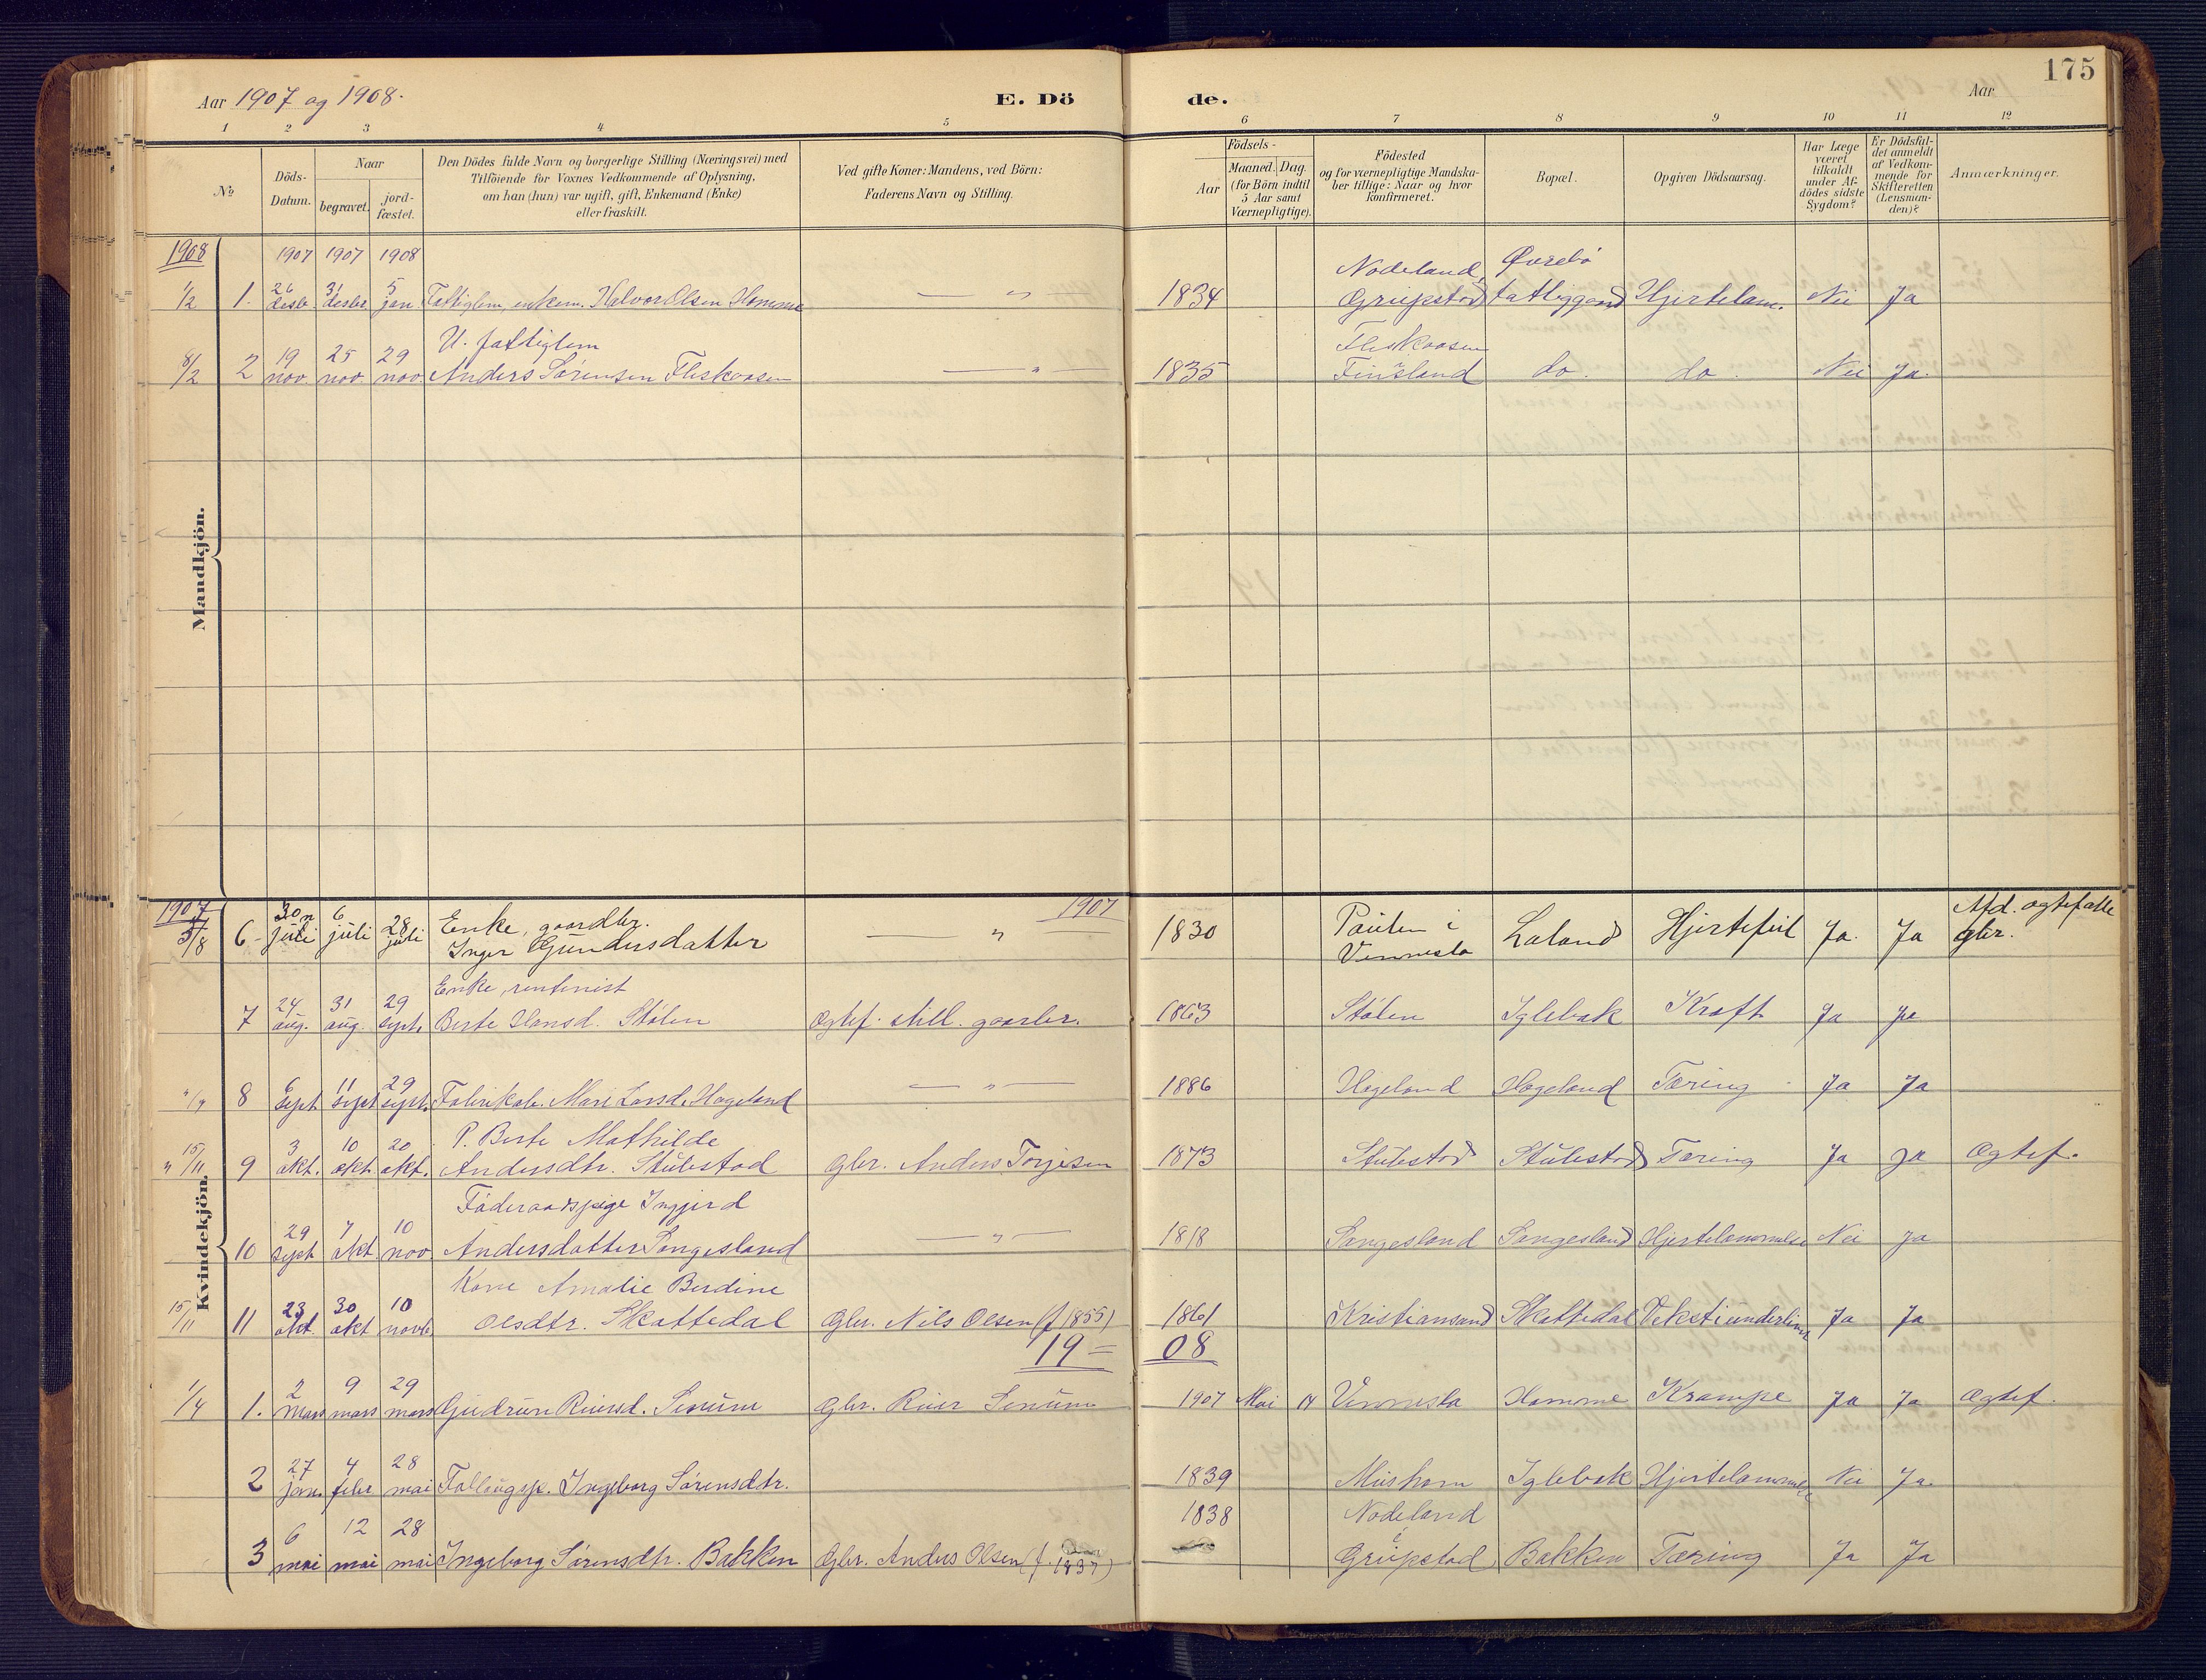 175
Aar 1907 og 1908.
E. Dö de.
Aar
1 2 3 4 5 6 7 8 9 10 11 12
No
Döds-
Datum.
Naar
begravet.
jord-
fæstet.
Den Dödes fulde Navn og borgerlige Stilling (Næringsvei) med
Tilföiende for Voxnes Vedkommende af Oplysning,
om han (hun) var ugift, gift, Enkemand (Enke)
eller fraskilt.
Ved gifte Koner: Mandens, ved Börn:
Faderens Navn og Stilling.
Födsels-
Aar
Maaned. Dag.
(for Börn indtil
5 Aar samt
Værnepligtige).
Födested
og for værnepligtige Mandska-
ber tillige: Naar og hvor
konfirmeret.
Bopæl.
Opgiven Dödsaarsag.
Har Læge
været
tilkaldt
under Af-
dödes sidste
Sygdom?
Er Dödsfal-
det anmeldt
af Vedkom-
mende for
Skifteretten
(Lensman-
den)?
Anmærkninger.
Mandkjön.
1908 1907 1907 1908
Nodeland, Øvrebø
1/2 1. 26 desb. 31 desbr. 5 jan. Fattiglem, enkem. Halvor Olsen Homme — " — 1834 Grupstad fattiggaard Hjertelam. Nei Ja
U. fattiglem Fleskaasen
8/2 2 19 nov. 25 nov. 29 nov Anders Sørensen Fleskaasen — " — 1835 Finsland do. do. Nei Ja.
Kvindekjön.
1907 1907
5/8 6 30 juli 6 juli 28 juli Enke, gaardbr.
Inger Gundersdatter — " 1830 Paulen i
Vennesla Laland Hjertefeil Ja. Ja Afd. ægtefælle
gbr.
Enke, rentenist
7 24 aug. 31 aug. 29 sept. Berte Hansd. Stølen Ægtef. still. gaarbr. 1863 Stølen Iglebæk Kræft Ja ja
8 6 sept 11 sept 29 sept. Fabrikarb. Mari Larsd. Hageland — " — 1886 Hægeland Hægeland Tæring Ja Ja
P. Berte Mathilde
" 15/11 9 3 okt. 10 okt. 20 okt. Andersdtr. Stulestad Gbr. Anders Torjesen 1873 Stulestad Stulestad Tæring Ja ja Ægtef.
Føderaadspige Ingjerd
10 29 sept 7 okt. 10 nov Andersdatter Sangesland — " — 1818 Sangesland Sangesland Hjertelammelse Nei Ja
Kone Amalie Berdine
15/11 11 23 okt. 30 okt 10 novb Olsdtr. Skattedal Gbr. Nils Olsen (f 1855) 1861 Kristiansand Skattedal Vekst i underlivet Ja Ja
19 = 08
1/4 1. 2 mars 9 mars 29 mars Gudrun Reiersd. Senum Gbr. Reier Senum 1907 Mai 14 Vennesla Homme Krampe Ja Ja Ægtef.
2 27 jan. 4 febr 28 mai Ingeborg Sørensdtr. 1839 Mushom Iglebæk Hjertelammelse Nei Ja.
1838 Nodeland
3 6 mai 12 mai 28 mai Ingeborg Sørensdtr. Bakken Gbr. Anders Olsen (f. 1837) Grupstad Bakken Tæring Ja Ja